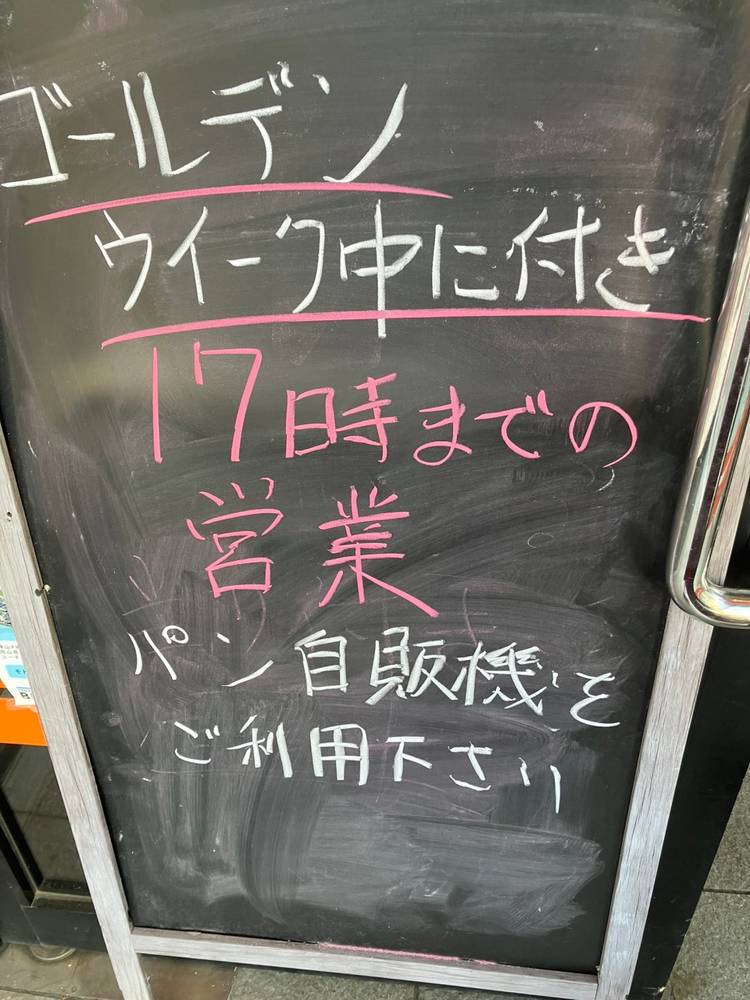 ゴールデン
ウイーク中に付き
17時までの
営業
パン自販機を
ご利用下さり